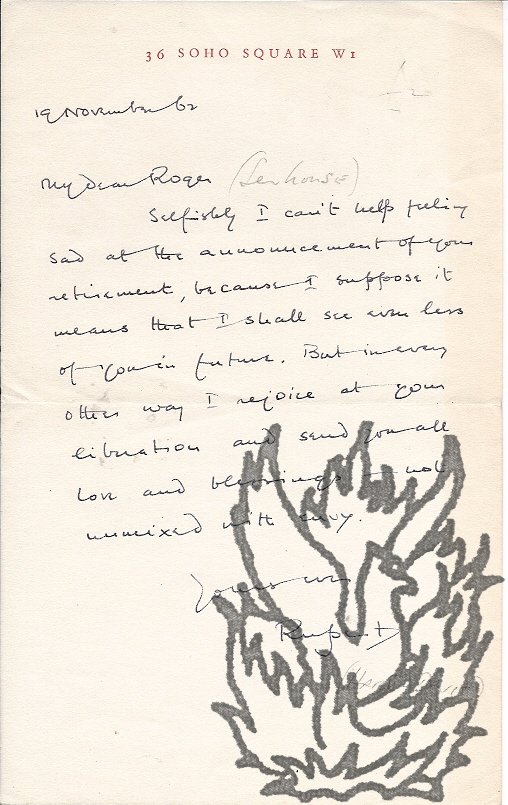 36 SOHO SQUARE W1
19 November 62
My dear Roger (Senhouse)
Selfishly I can't help feeling
sad at the announcement of your
retirement, because I suppose it
means that I shall see even less
of you in future. But in every
other way I rejoice at your
liberation and send you all
love and blessings - not
unmixed with envy.
Yours ever
Rupert